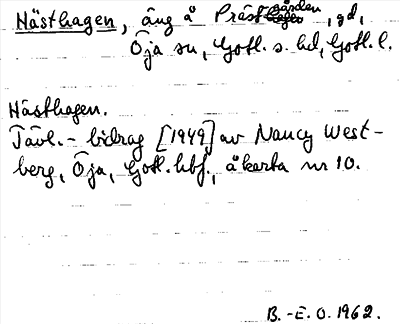 Hästhagen, äng å Prästgården, gd,
Öja sn, Gotl. s. hd, Gotl. l.
Hästhagen.
Tävl.-bidrag [1949] av Nancy West-
berg, Öja, Gotl. hbf., åkerta nr 10.
B.-E. O. 1962.